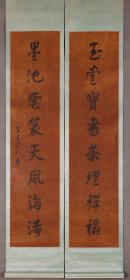 玉堂寶書茶煙禪榻
墨池雲篆天風海濤